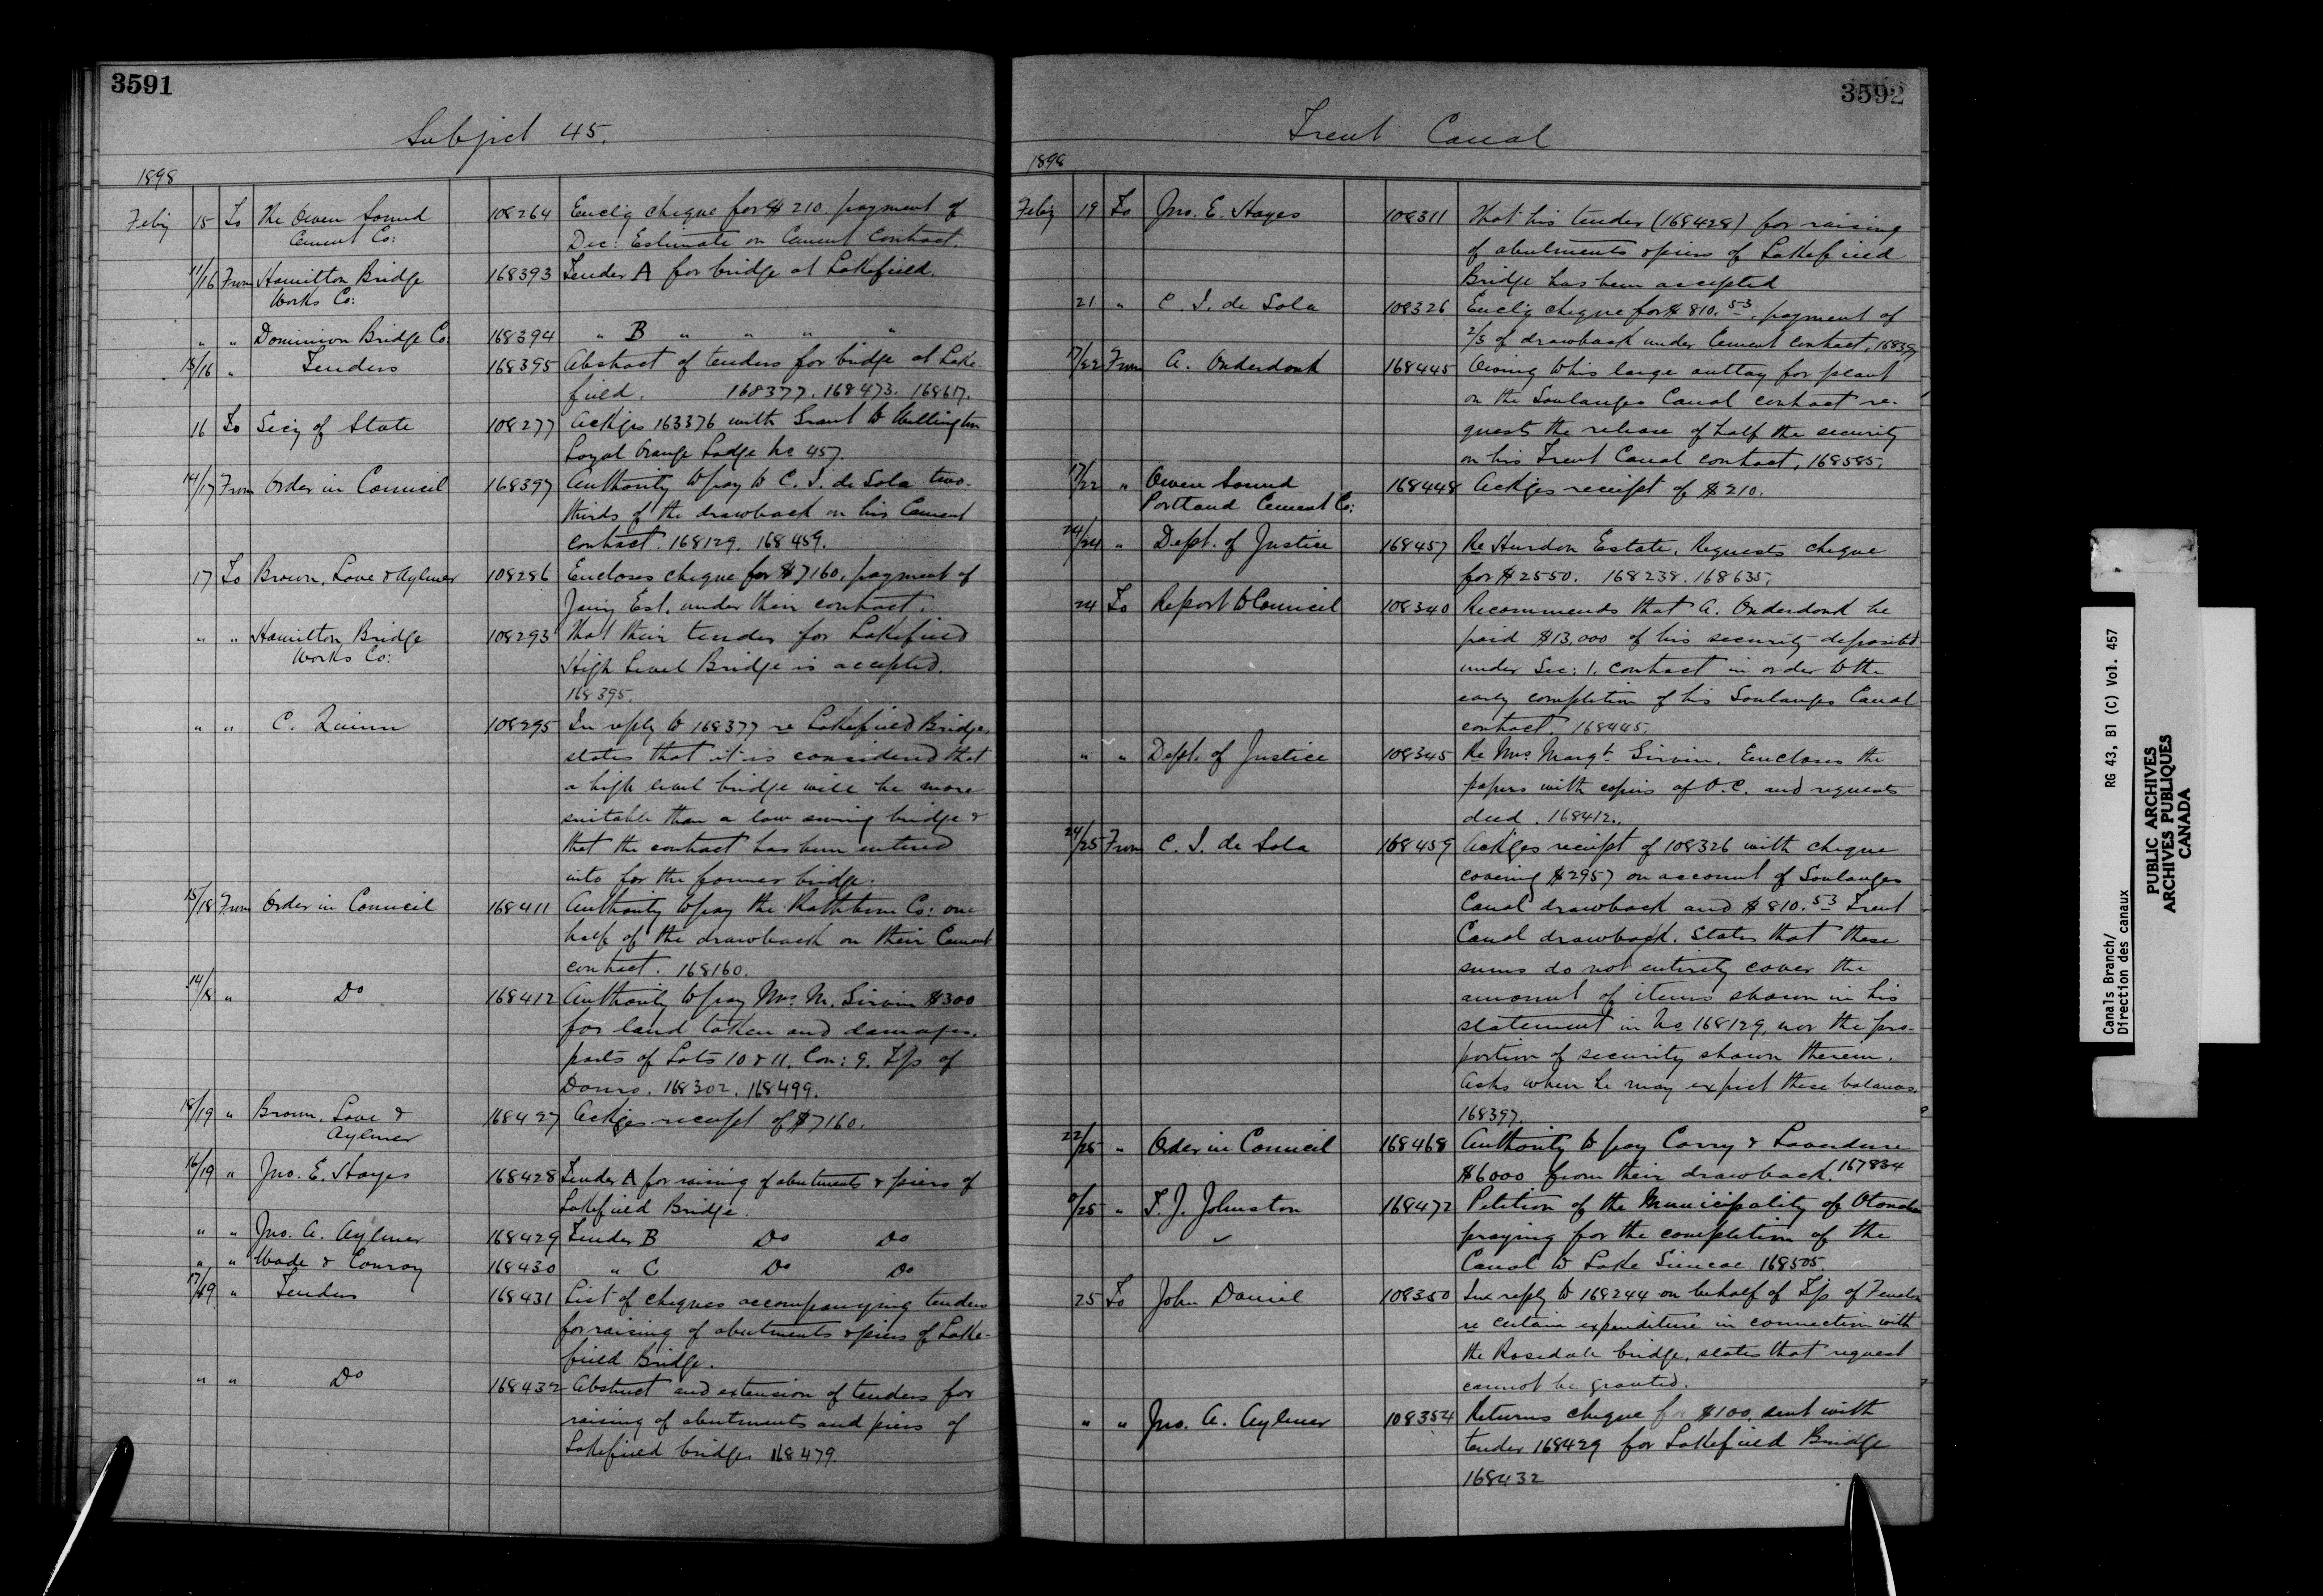 3591
Subject 45.
1898
Feby 15 To The Owen Sound 108264 Enclg cheque for $210 payment of
Cement Co: Dec: Estimate on Cement Contract.
11/16 From Hamilton Bridge 168393 Tender A for bridge at Lakefield.
Works Co:
" " Dominion Bridge Co: 168394 " B " " " "
15/16 " Tenders 168395 Abstract of tenders for bridge at Lake-
field. 168377. 168473. 168617.
16 To Secy of State 108277 Ackges 163376 with Grant to Wellington
Loyal Orange Lodge No 457.
14/17 From Order in Council 168397 Authority to pay to C. I. de Sola two-
thirds of the drawback on his Cement
contract. 168129. 168459.
17 To Brown, Love & Aylmer 108286 Encloses cheque for $7160, payment of
Jany Est. under their contract.
" " Hamilton Bridge 108293 That their tender for Lakefield
Works Co: High Level Bridge is accepted.
168395.
" " C. Quinn 108295 In reply to 168377 re Lakefield Bridge,
states that it is considered that
a high level bridge will be more
suitable than a low swing bridge &
that the contract has been entered
into for the former bridge.
15/18 From Order in Council 168411 Authority to pay the Rathbun Co: one
half of the drawback on their Cement
contract. 168160.
14/18 " Do 168412 Authority to pay Mrs M. Girvin $300
for land taken and damages,
parts of Lots 10 & 11. Con: 9. Tp of
Douro. 168302. 168499.
18/19 " Brown, Love & 168427 Ackges receipt of $7160.
Aylmer
16/19 " Jno. E. Hayes 168428 Tender A for raising of abutments & piers of
Lakefield Bridge.
" " Jno. A. Aylmer 168429 Tender B Do Do
" " Wade & Conroy 168430 " C Do Do
17/19 " Tenders 168431 List of cheques accompanying tenders
for raising of abutments & piers of Lake-
field Bridge.
" " Do 168432 Abstract and extension of tenders for
raising of abutments and piers of
Lakefield bridge 168479.
3592
Trent Canal
1898
Feby 19 To Jno. E. Hayes 108311 That his tender (168428) for raising
of abutments & piers of Lakefield
Bridge has been accepted
21 " C. I. de Sola 108326 Enclg cheque for $810.53, payment of
2/3 of drawback under Cement contract, 168397
17/22 From A. Onderdonk 168445 Owing to his large outlay for plant
on the Soulanges Canal contract re-
quests the release of half the security
on his Trent Canal contract, 168585.
17/22 " Owen Sound 168448 Ackges receipt of $210.
Portland Cement Co:
24/24 " Dept. of Justice 168457 Re Hurdon Estate. Requests cheque
for $2550. 168238. 168635.
24 To Report to Council 108340 Recommends that A. Onderdonk be
paid $13,000 of his security deposited
under Sec: 1. contract in order to the
early completion of his Soulanges Canal
contract. 168445.
" " Dept. of Justice 108345 Re Mrs Margt Girvin. Encloses the
papers with copies of O.C. and requests
deed. 168412.
24/25 From C. I. de Sola 168459 Ackges receipt of 108326 with cheque
covering $2957 on account of Soulanges
Canal drawback and $810.53 Trent
Canal drawback. States that these
sums do not entirely cover the
amount of items shown in his
statement in No 168129, nor the pro-
portion of security shown therein.
Asks when he may expect these balances.
168397.
22/25 " Order in Council 168468 Authority to pay Corry & Laverdure
$6000 from their drawback. 167834
/25 " T. J. Johnston 168472 Petition of the Municipality of Otonabee
praying for the completion of the
Canal to Lake Simcoe 168505.
25 To John Daniel 108350 In reply to 168244 on behalf of Tp. of Fenelon
re certain expenditure in connection with
the Rosedale bridge, states that request
cannot be granted.
" " Jno. A. Aylmer 108354 Returns cheque for $100. sent with
tender 168429 for Lakefield Bridge
168432
Canals Branch/ RG 43, B1 (C) Vol. 457
Direction des canaux
PUBLIC ARCHIVES
ARCHIVES PUBLIQUES
CANADA